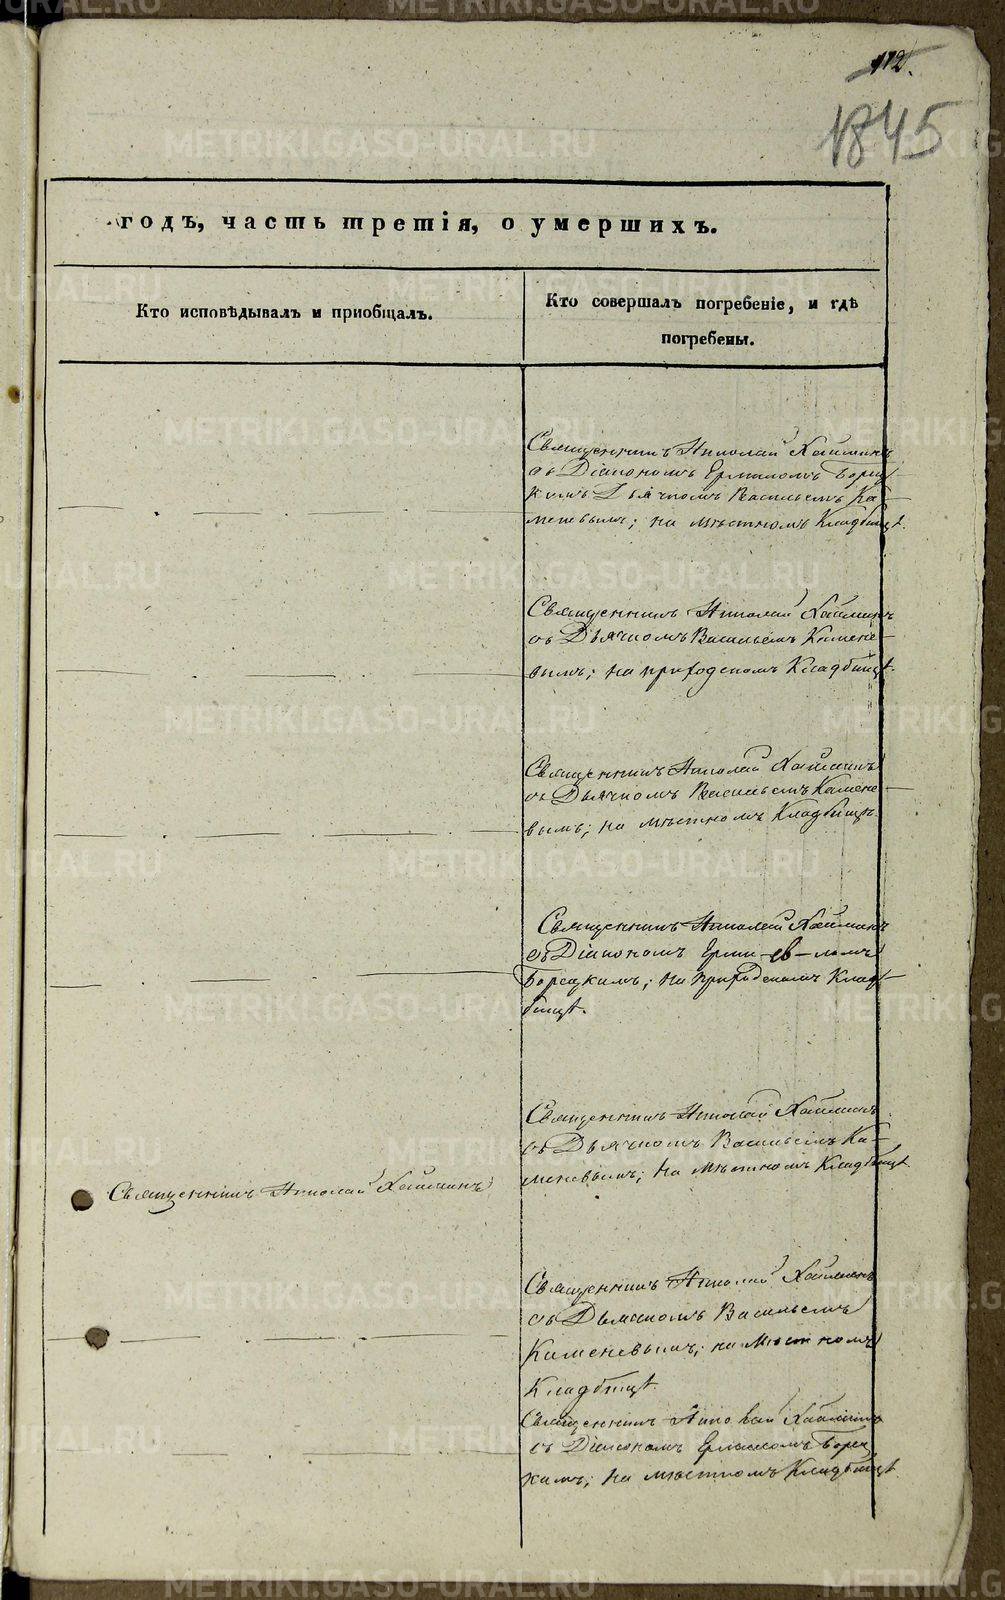 112.
1845
годъ, часть третія, о умершихъ.
Кто исповѣдывалъ и приобщалъ.
Кто совершалъ погребеніе, и гдѣ
погребены.
Священникъ Николай Хайминъ
съ Діакономъ Ермиломъ Борец-
кимъ Дьячкомъ Васильемъ Ка-
меневымъ; на мѣстномъ Кладбищѣ.
Священникъ Николай Хайминъ
съ Дьячкомъ Васильемъ Камене-
вымъ; на приходскомъ Кладбищѣ.
Священникъ Николай Хайминъ
съ Дьячкомъ Васильемъ Камене-
вымъ; на мѣстномъ Кладбищѣ.
Священникъ Николай Хайминъ
съ Діакономъ
Борецкимъ; на приходскомъ Клад-
бищѣ.
Священникъ Николай Хайминъ
съ Дьячкомъ Васильемъ Ка-
меневымъ; на мѣстномъ Кладбищѣ.
Священникъ Николай Хайминъ
Священникъ Николай Хайминъ
съ Дьячкомъ Васильемъ
Каменевымъ; на мѣстномъ
Кладбищѣ.
Священникъ Николай Хайминъ
съ Діакономъ Ермиломъ Борец-
кимъ; на мѣстномъ Кладбищѣ.
METRIKI.GASO-URAL.RU